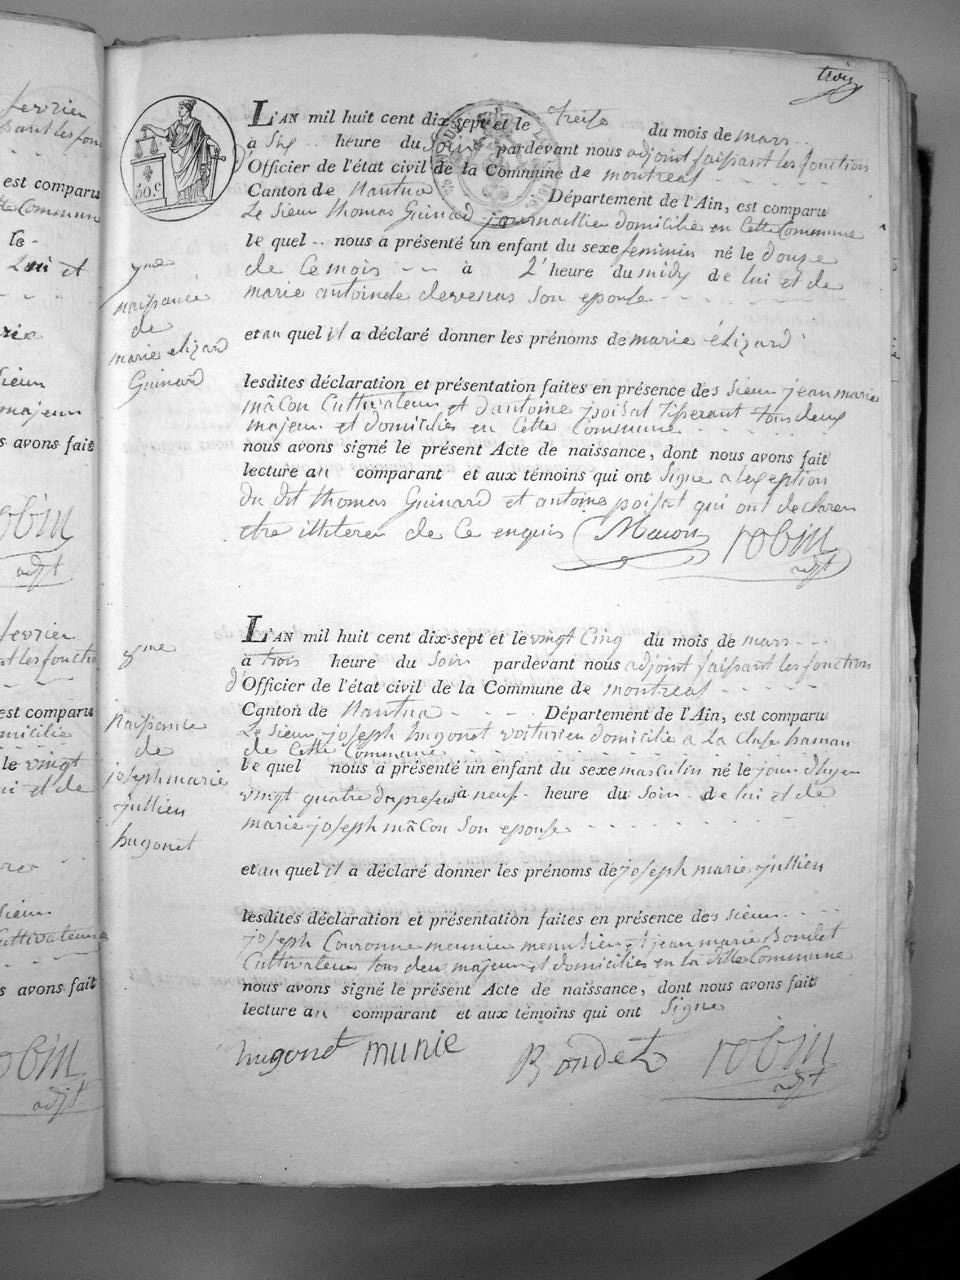 trois
L'AN mil huit cent dix-sept et le treise du mois de mars
à six heure du soir pardevant nous adjoint faissant les fonction
d'Officier de l'état civil de la Commune de montreal
Canton de Nantua Département de l'Ain, est comparu
Le sieur thomas Guinard journaillier domicilié en Cette Commune
le quel nous a présenté un enfant du sexe feminin né le douze
de Ce mois à 2 heure du midy de lui et de
marie antoinete devenas son epouse
et au quel il a déclaré donner les prénoms de marie élizard
lesdites déclaration et présentation faites en présence des sieur jean marie
mâcon Cultivateur et d'antoine poisat tisserant tous deux
majeur et domiciliés en Cette Commune
nous avons signé le présent Acte de naissance, dont nous avons fait
lecture au comparant et aux témoins qui ont signe a lexeption
du dit thomas Guinard et antoine poisat qui ont declarer
etre illiterer de Ce enquis Macon robin
adjt
naissance
de
marie elizard
Guinard
50.c
L'AN mil huit cent dix-sept et le vingt Cinq du mois de mars
à trois heure du soir pardevant nous adjoint faissant les fonction
d'Officier de l'état civil de la Commune de montreal
Canton de Nantua Département de l'Ain, est comparu
Le sieur joseph hugonet voiturier domicilié a La Cluse hamau
de Cette Commune
le quel nous a présenté un enfant du sexe masculin né le jour d'hyer
vingt quatre du present à neuf heure du soir de lui et de
marie joseph mâcon son epouse
et au quel il a déclaré donner les prénoms de joseph marie jullien
lesdites déclaration et présentation faites en présence des sieur
joseph Couronne meunier menusier et jean marie Bondet
Cultivateur tous deux majeur et domiciliés en la ditte Commune
nous avons signé le présent Acte de naissance, dont nous avons fait
lecture au comparant et aux témoins qui ont signe
hugonet munie Bondet robin
adjt
Naissance
de
joseph marie
jullien
hugonet